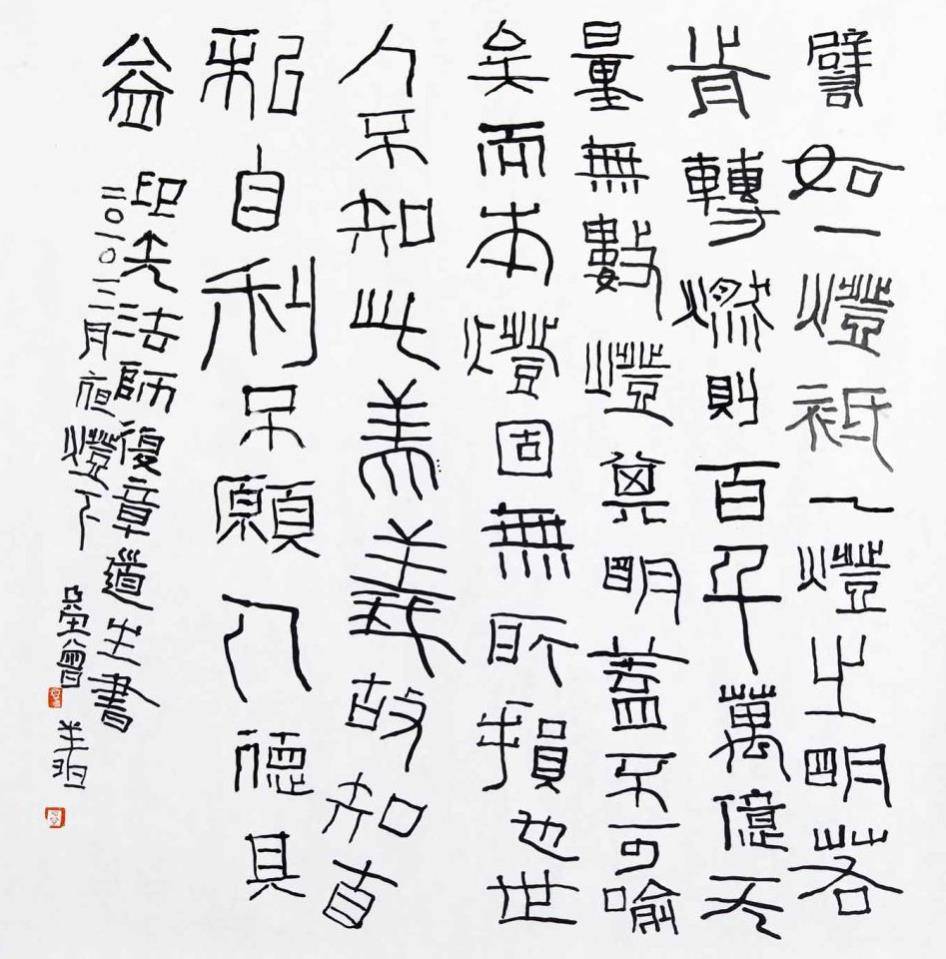 譬如一燈祇一燈之明若
肯轉燃則百千萬億无
量無數燈其明蓋不可喻
矣而本燈固無所損也世
人不知此義故知
私自利不願人德其
益
印光法師復章道生書
二〇一〇三月夜燈下